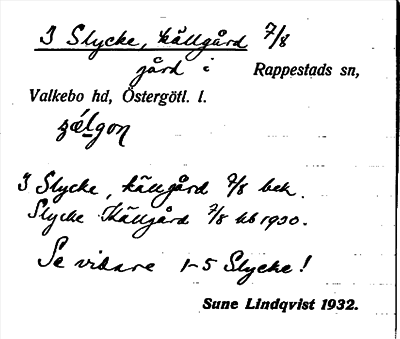 I Slycke, källgård 7/8
gård i Rappestads sn,
Valkebo hd, Östergötl. l.
zǽlgon
I Slycke, källgård 7/8 bek.
Slycke Källgård 7/8 kb 1930.
Se vidare 1-5 Slycke!
Sune Lindqvist 1932.